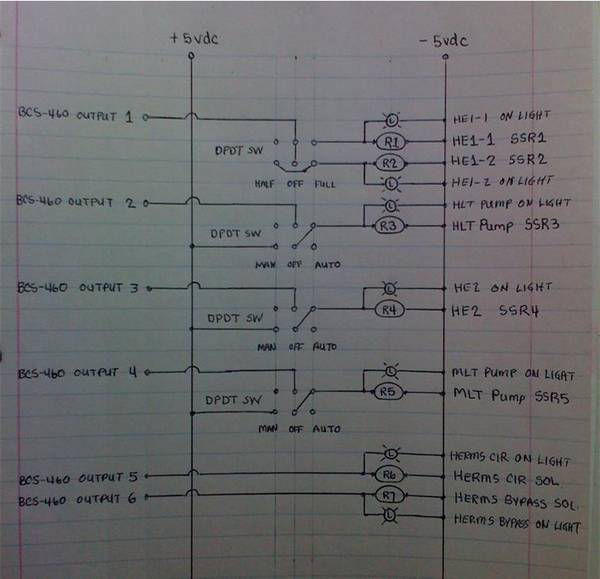 +5vdc
- 5vdc
BCS-460 OUTPUT 1
L
HE1-1 ON LIGHT
R1
HE1-1 SSR1
DPDT SW
R2
HE1-2 SSR2
HALF OFF FULL
L
HE1-2 ON LIGHT
BCS-460 OUTPUT 2
L
HLT PUMP ON LIGHT
DPDT SW
R3
HLT PUMP SSR3
MAN OFF AUTO
BCS-460 OUTPUT 3
L
HE2 ON LIGHT
DPDT SW
R4
HE2 SSR4
MAN OFF AUTO
BCS-460 OUTPUT 4
L
MLT PUMP ON LIGHT
DPDT SW
R5
MLT PUMP SSR5
MAN OFF AUTO
L
HERMS CIR ON LIGHT
BCS-460 OUTPUT 5
R6
HERMS CIR SOL
BCS-460 OUTPUT 6
R7
HERMS BYPASS SOL.
L
HERMS BYPASS ON LIGHT